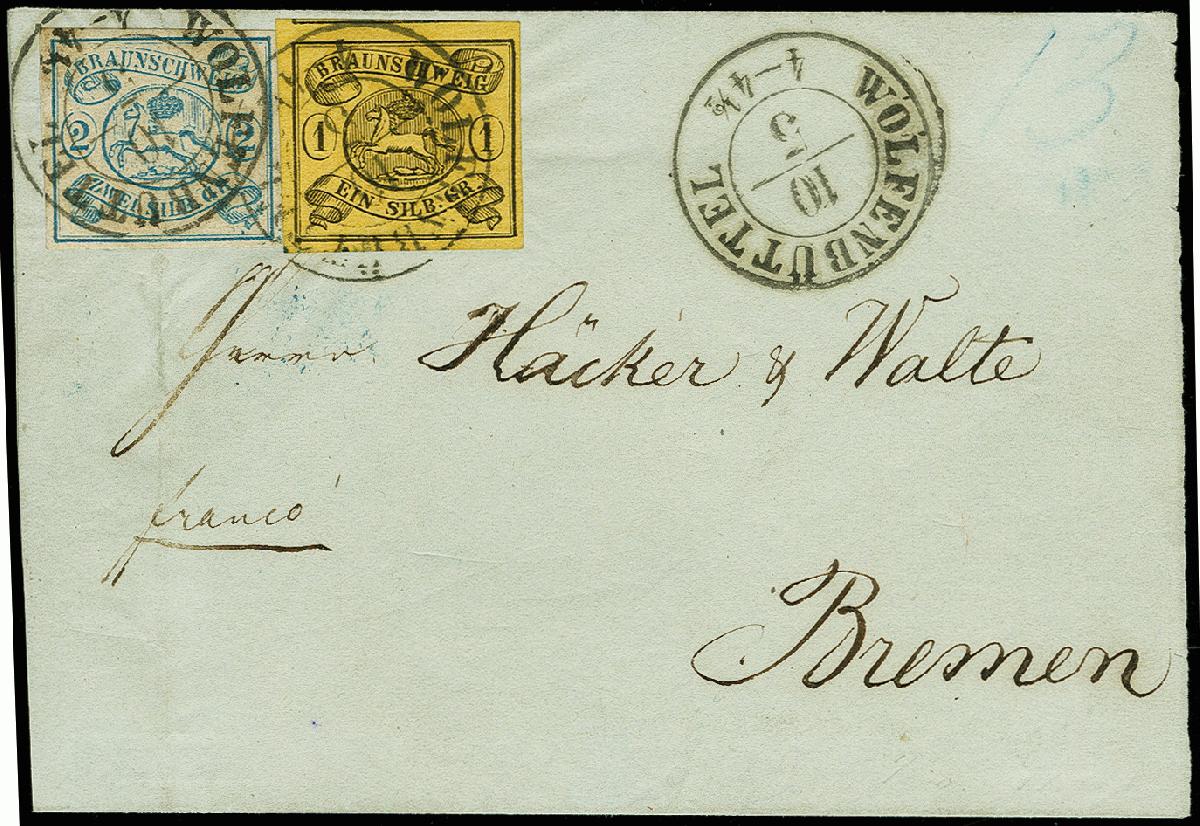 BRAUNSCHWEIG
2
ZWEI SILB GR.
BRAUNSCHWEIG
1 1
EIN SILB. GR.
WOLFENBÜTTEL
WOLFENBÜTTEL
WOLFENBÜTTEL
10
5
4–4½
Herrn Häcker & Walte
franco
Bremen